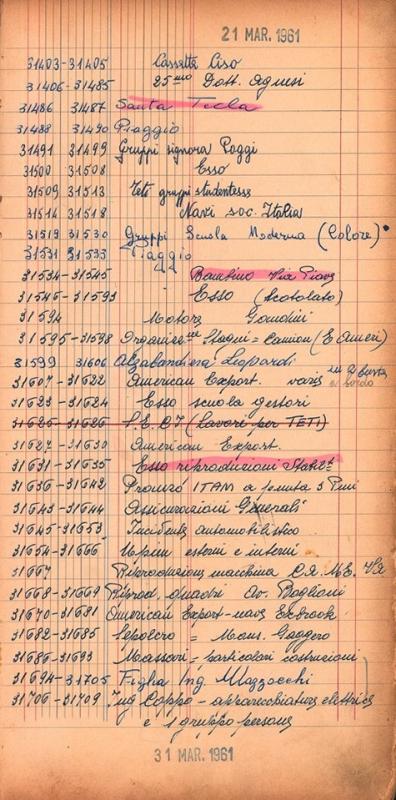 21 MAR. 1961
31403-31405 Cassetta Ciso
31406-31485 25mo Dott. Agnesi
31486 31487 Santa Tecla
31488 31490 Piaggio
31491 31499 Gruppi signora Poggi
31500 31508 Esso
31509 31513 Teti gruppi studentesse
31514 31518 Navi soc. Italia
31519 31530 Gruppi Scuola Moderna (Colore)
31531 31533 Piaggio
31534-31545 Bambino Via Piave
31545-31593 Esso (Scotolato)
31594 Motore Gondini
31595-31598 = Camion (E Ameri)
31599 31606 Alzabandiera Leopardi
31607-31622 American Export. varie in 2 buste
a bordo
31623-31624 Esso scuola gestori
31625-31626 S.E.C.I (Lavori per TETI)
31627-31630 American Export.
31631-31635 Esso riproduzioni
31636-31642 ITAM a 3 Pini
31643-31644 Assicurazioni Generali
31645-31653 Incidente automobilistico
31654-31666 Upim esterni e interni
31667 Riproduzione macchina
31668-31669 Riprod. quadri av. Baglioni
31670-31681 American Export-nave Exbrook
31682-31685 Sepolcro = Mons. Gaggero
31686-31693 = particolari costruzioni
31694-31705 Figlia Ing. Mazzocchi
31706-31709 Ing Coppo - apparecchiature elettriche
e 1 gruppo persone
31 MAR. 1961